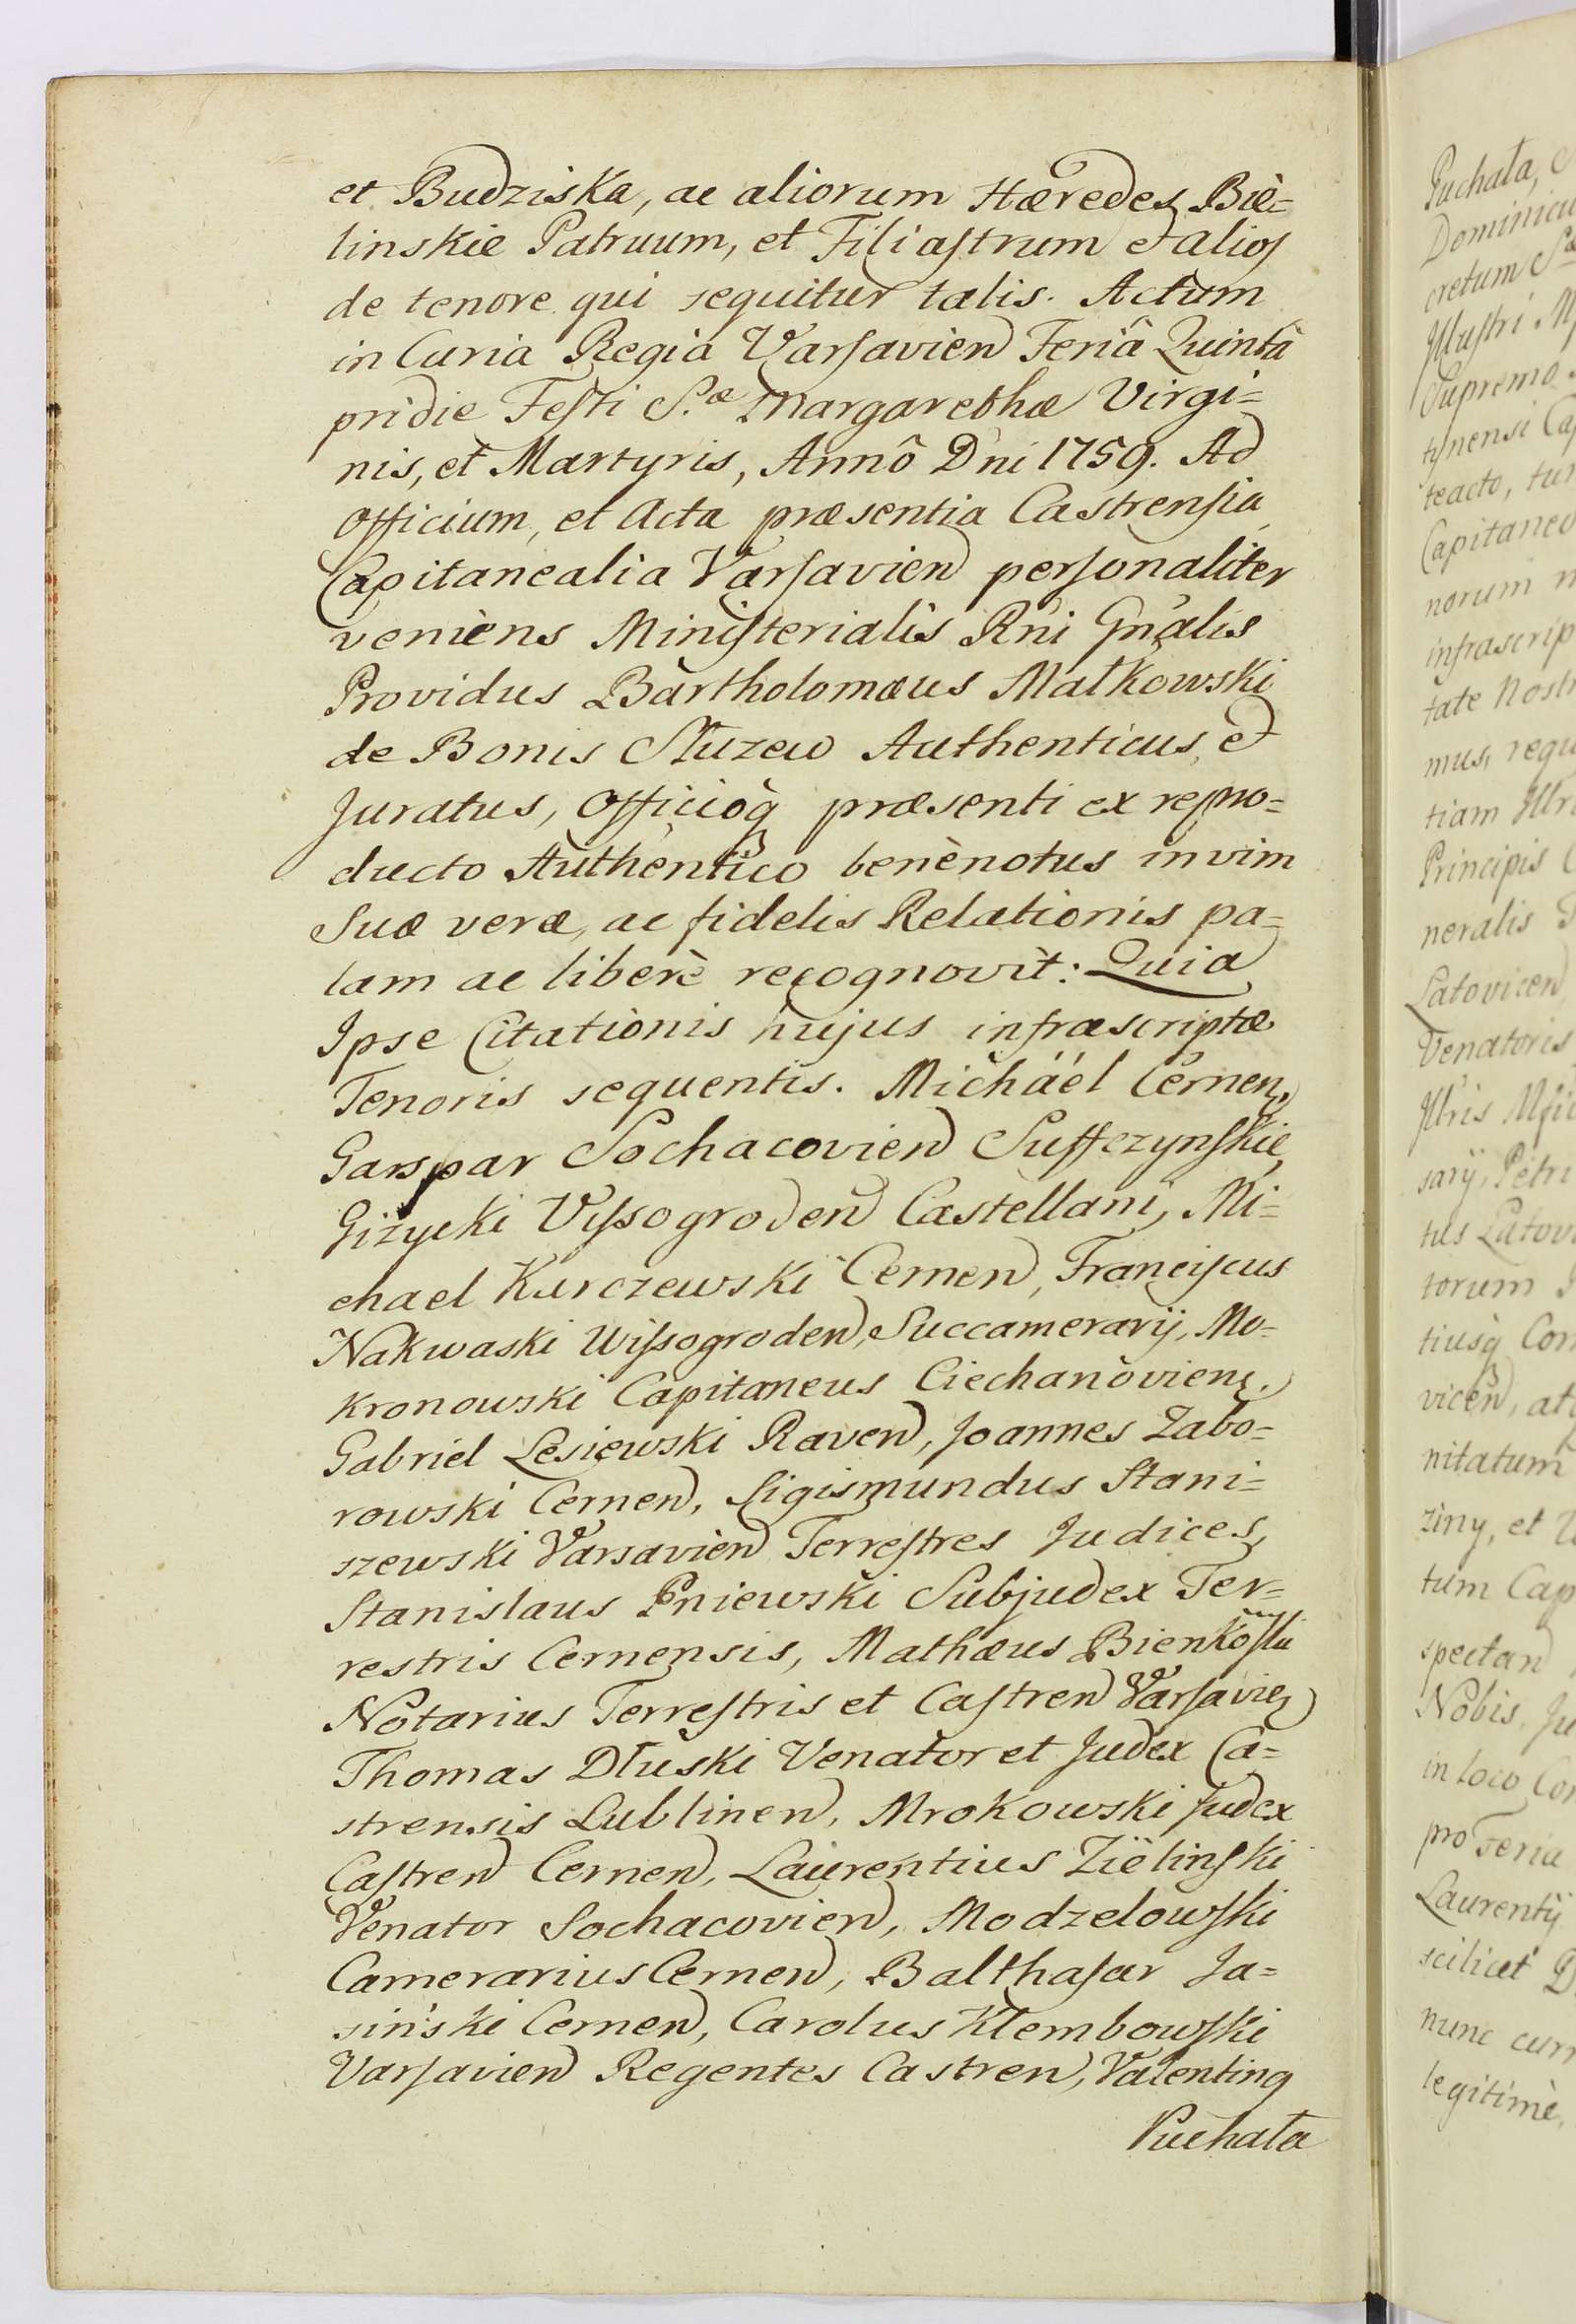 et Budziska, ac aliorum Hæredes Bie=
linskie Patruum, et Filiastrum et alios
de tenore qui sequitur talis. Actum
in Curia Regia Varsavien Feriâ Quintâ
pridie Festi S.æ Margarethæ Virgi=
nis, et Martyris, Annô Dni 1759. Ad
Officium, et Acta præsentia Castrensia
Capitanealia Varsavien personaliter
veniens Ministerialis Rni Gnalis
Providus Bartholomæus Małkowski
de Bonis Służew Authenticus, et
Juratus, Officiòq præsenti ex repro=
ducto Authentico benènotus in vim
Suæ veræ, ac fidelis Relationis pa=
lam ac liberè recognovit: Quia
Ipse Citationis hujus infrascriptæ
Tenoris sequentis. Michaél Cernen,
Gaspar Sochacovien Suffczynskie,
Giżycki Vissogroden Castellani, Mi=
chael Kurczewski Cernen, Franciscus
Nakwaski Wissogroden, Succamerarij, Mo=
kronowski Capitaneus Ciechanovien,
Gabriel Lesiewski Raven, Joannes Zabo=
rowski Cernen, Sigismundus Stani=
szewski Varsavien Terrestres Judices,
Stanislaus Pniewski Subjudex Ter=
restris Cernensis, Mathæus Bienkoski
Notarius Terrestris et Castren Varsavien
Thomas Dłuski Venator et Judex Ca=
strensis Lublinen, Mrokowski Judex
Castren Cernen, Laurentius Zielinski
Venator Sochacovien, Modzelowski
Camerarius Cernen, Balthasar Ja=
siński Cernen, Carolus Klembowski
Varsavien Regentes Castren, Valenting
Puchała
Puchała,
Dominicu
cretum
Illustri
Supremo
tynensi Cap
teacto, tur
Capitaneo
norum
infrascrip
tate Nostr
mus, requ
tiam Illri
Principis
neralis
Latovicen
Venatoris
Illris
sarij, Petri
tus Latovi
torum
tiusq Con
vicen, atq
nitatum
ziny, et
tum Cap
spectan
Nobis, Ju
in loco Con
pro Feria
Laurentij
scilicet
nunc curr
legitimè,